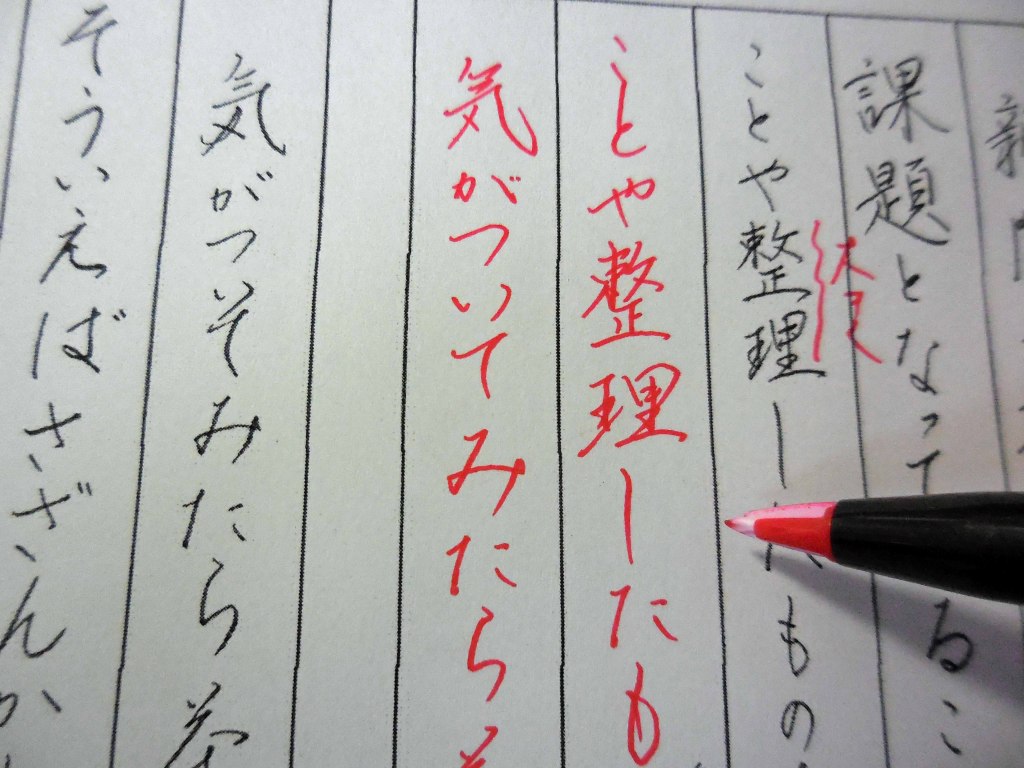 課題となってるこ
ことや整理したもの
ことや整理したも
気がついてみたら
気がついそみたら茶
そういえばさざんか